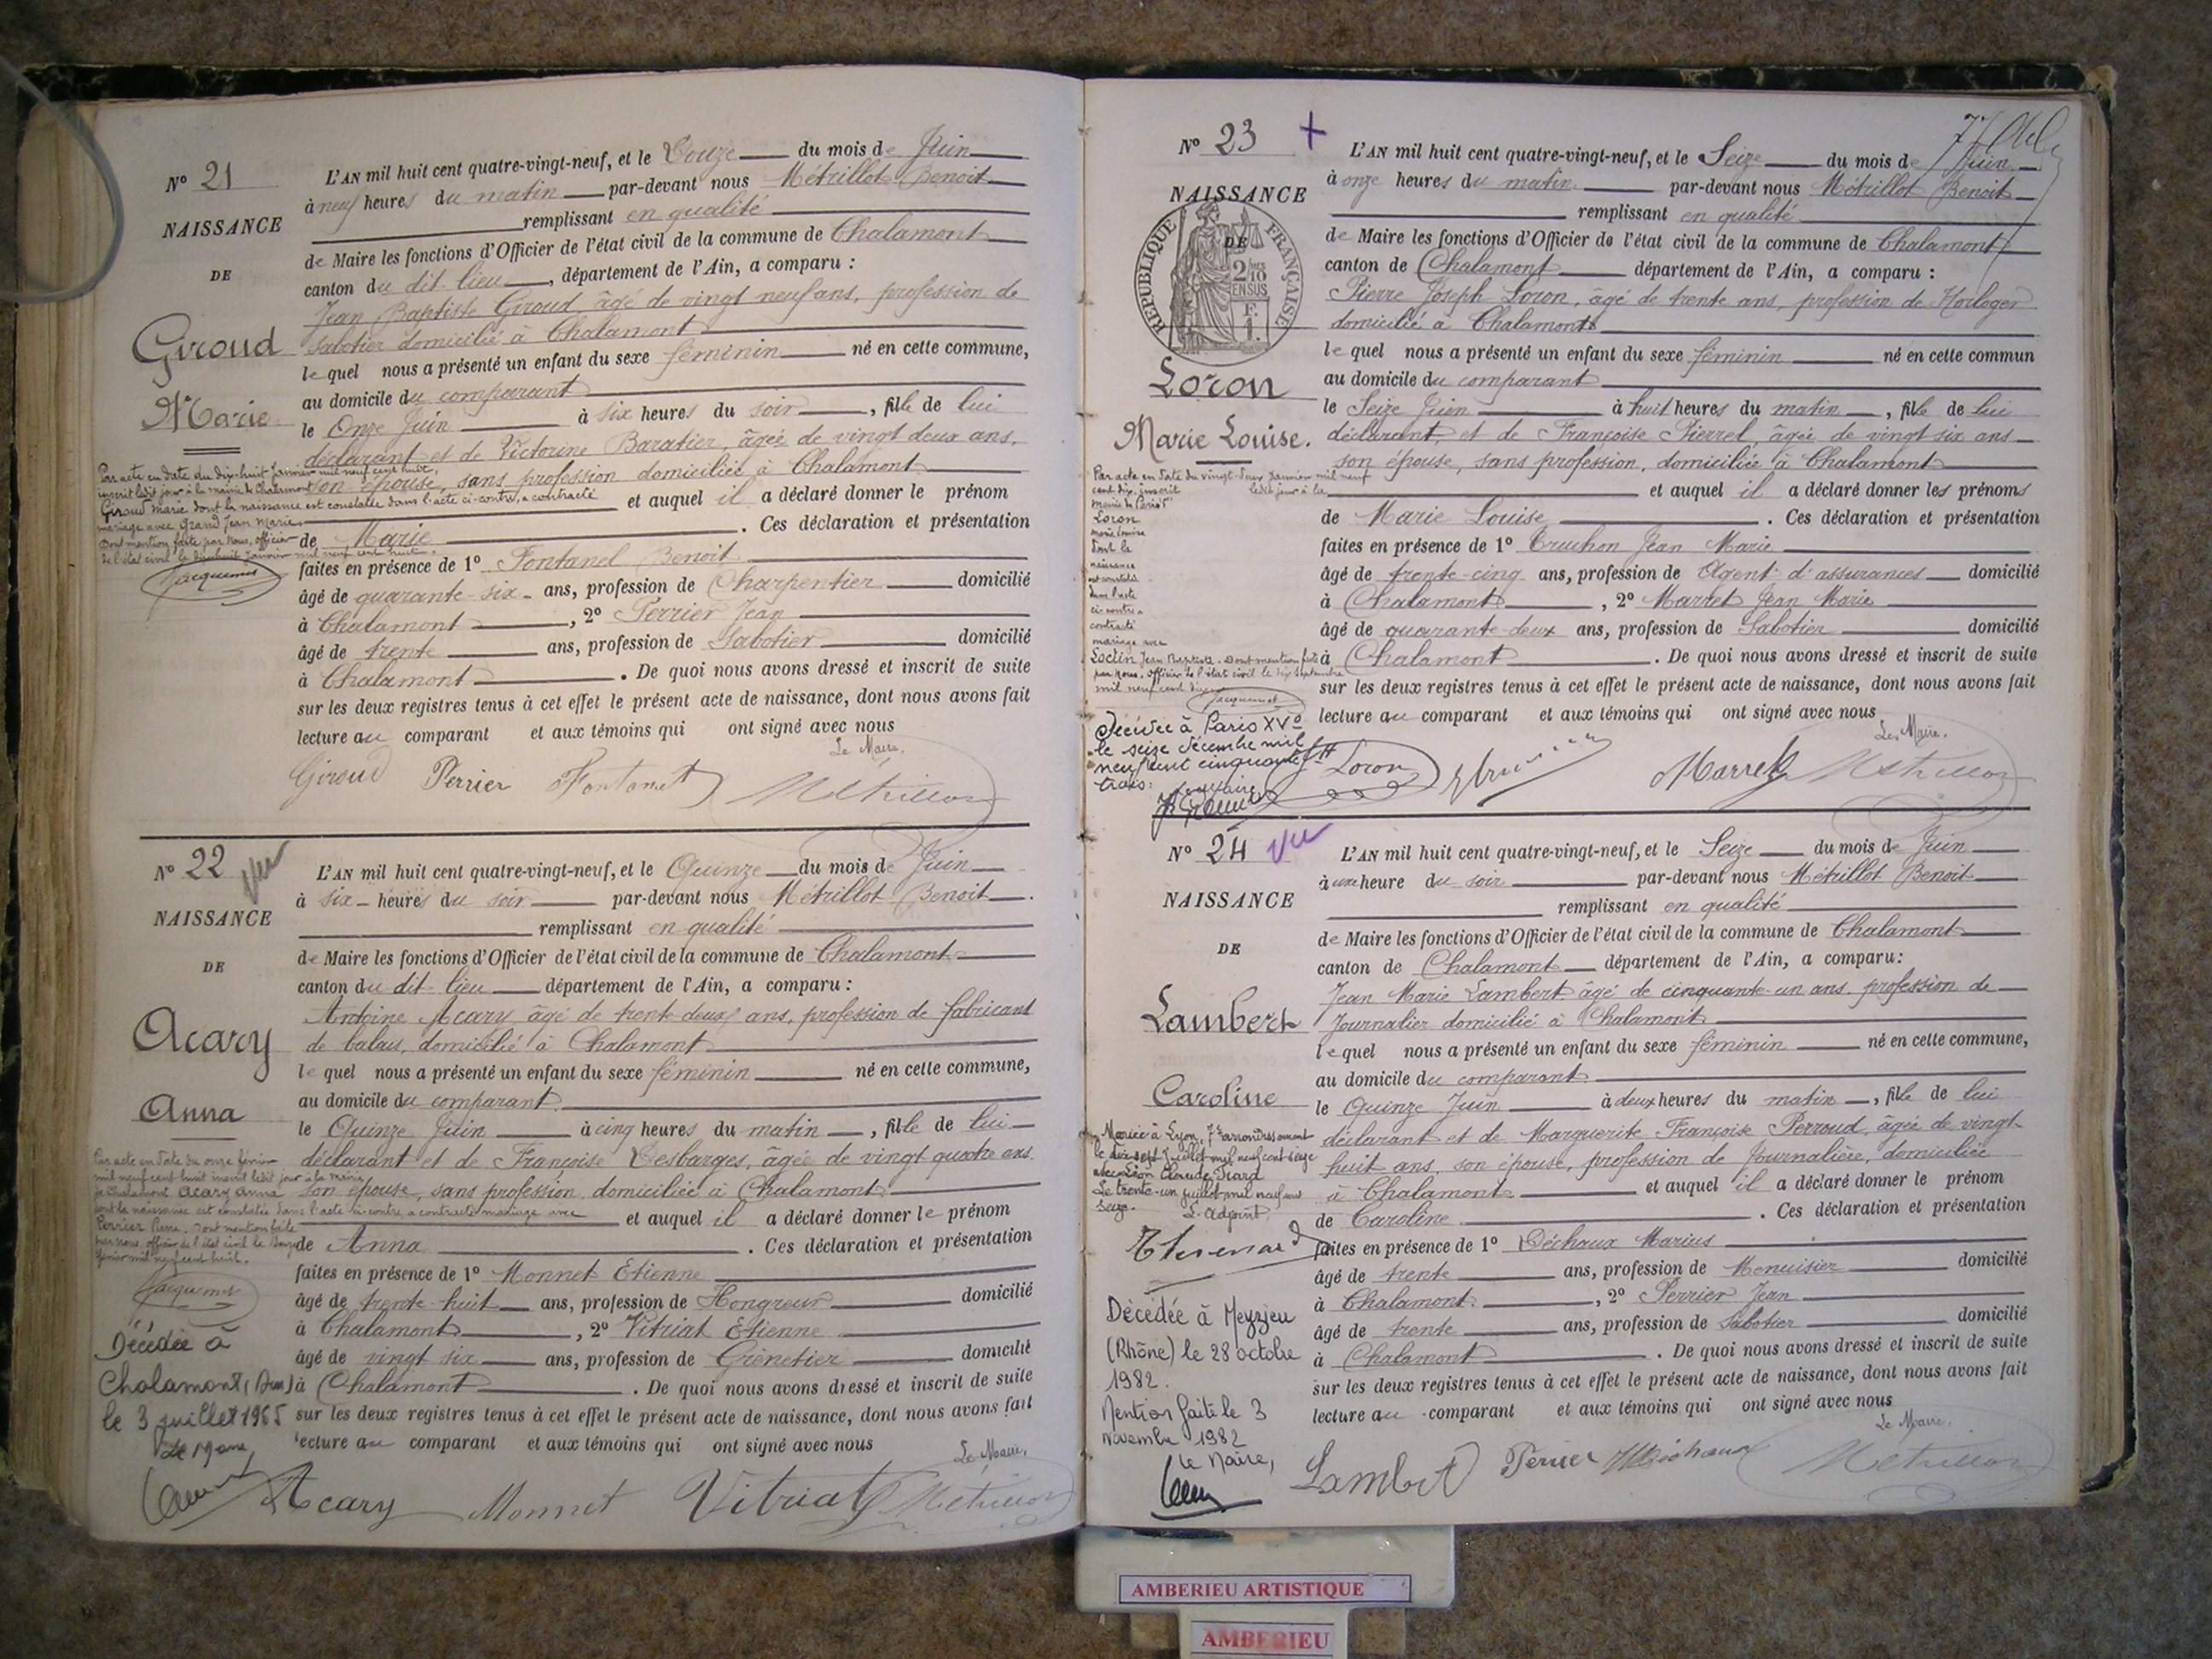 Nº 21
NAISSANCE
DE
Giroud
Marie
L'AN mil huit cent quatre-vingt-neuf, et le Douze du mois de Juin
à neuf heures du matin par-devant nous Métrillot Benoit
remplissant en qualité
de Maire les fonctions d'Officier de l'état civil de la commune de Chalamont
canton du dit lieu, département de l'Ain, a comparu :
Jean Baptiste Giroud, âgé de vingt neuf ans, profession de
sabotier domicilié à Chalamont
lequel nous a présenté un enfant du sexe féminin né en cette commune,
au domicile du comparant
le Onze Juin à six heures du soir, fille de lui
déclarant et de Victorine Baratier, âgée de vingt deux ans,
son épouse, sans profession domiciliée à Chalamont
et auquel il a déclaré donner le prénom
de Marie. Ces déclaration et présentation
faites en présence de 1º Fontanel Benoit
âgé de quarante-six ans, profession de Charpentier domicilié
à Chalamont, 2º Perrier Jean
âgé de trente ans, profession de Sabotier domicilié
à Chalamont. De quoi nous avons dressé et inscrit de suite
sur les deux registres tenus à cet effet le présent acte de naissance, dont nous avons fait
lecture au comparant et aux témoins qui ont signé avec nous
Le Maire,
Giroud Perrier Fontanel Métrillot
Par acte en date du dix-huit Janvier mil neuf cent huit,
inscrit ledit jour à la mairie de Chalamont
Giroud Marie dont la naissance est constatée dans l'acte ci-contre, a contracté
mariage avec Grand Jean Marie.
Dont mention faite par Nous, officier
de l'état civil le dix-huit Janvier mil neuf cent huit.
Jacquemet
Nº 22 Vu
NAISSANCE
DE
Acary
Anna
L'AN mil huit cent quatre-vingt-neuf, et le Quinze du mois de Juin
à six heures du soir par-devant nous Métrillot Benoit.
remplissant en qualité
de Maire les fonctions d'Officier de l'état civil de la commune de Chalamont
canton du dit lieu département de l'Ain, a comparu :
Antoine Acary âgé de trente deux ans, profession de fabricant
de balais, domicilié à Chalamont
lequel nous a présenté un enfant du sexe féminin né en cette commune,
au domicile du comparant
le Quinze Juin à cinq heures du matin, fille de lui
déclarant et de Françoise Desbarges, âgée de vingt quatre ans.
son épouse, sans profession domiciliée à Chalamont
et auquel il a déclaré donner le prénom
de Anna. Ces déclaration et présentation
faites en présence de 1º Monnet Etienne
âgé de trente-huit ans, profession de Hongreur domicilié
à Chalamont, 2º Vitriat Etienne
âgé de vingt six ans, profession de Grènetier domicilié
à Chalamont. De quoi nous avons dressé et inscrit de suite
sur les deux registres tenus à cet effet le présent acte de naissance, dont nous avons fait
lecture au comparant et aux témoins qui ont signé avec nous
Le Maire,
Acary Monnet Vitriat Métrillot
Par acte en date du onze février
mil neuf cent huit inscrit ledit jour à la mairie
de Chalamont Acary Anna
dont la naissance est constatée dans l'acte ci-contre a contracté mariage avec
Perrier Pierre. Dont mention faite
par nous, officier de l'état civil le douze
février mil neuf cent huit.
Jacquemet
Décédée à
Chalamont (Ain)
le 3 juillet 1965
Le Maire,
Nº 23 +
NAISSANCE
DE
REPUBLIQUE FRANÇAISE
2/10 EN SUS
F. 1.
Loron
Marie Louise.
L'AN mil huit cent quatre-vingt-neuf, et le Seize du mois de Juin
à onze heures du matin par-devant nous Métrillot Benoit
remplissant en qualité
de Maire les fonctions d'Officier de l'état civil de la commune de Chalamont
canton de Chalamont département de l'Ain, a comparu :
Pierre Joseph Loron, âgé de trente ans, profession de Horloger
domicilié à Chalamont
lequel nous a présenté un enfant du sexe féminin né en cette commun
au domicile du comparant
le Seize Juin à huit heures du matin, fille de lui
déclarant, et de Françoise Pierrel, âgée de vingt six ans
son épouse, sans profession, domiciliée à Chalamont
et auquel il a déclaré donner les prénoms
de Marie Louise. Ces déclaration et présentation
faites en présence de 1º Truchon Jean Marie
âgé de trente-cinq ans, profession de Agent d'assurances domicilié
à Chalamont, 2º Marret Jean Marie
âgé de quarante-deux ans, profession de Sabotier domicilié
à Chalamont. De quoi nous avons dressé et inscrit de suite
sur les deux registres tenus à cet effet le présent acte de naissance, dont nous avons fait
lecture au comparant et aux témoins qui ont signé avec nous
Le Maire.
Loron Marret Métrillot
Par acte en date du vingt-deux Janvier mil neuf
cent dix, inscrit ledit jour à la
mairie de
Loron
marie louise
dont la
naissance
est constatée
dans l'acte
ci-contre a
contracté
mariage avec
Loctin Jean Baptiste. Dont mention faite
par Nous, officier de l'état civil le dix septembre
mil neuf cent dix
Jacquemet
Décédée à Paris XVe
le seize décembre mil
neuf cent cinquante
trois:
Nº 24 Vu
NAISSANCE
DE
Lambert
Caroline
L'AN mil huit cent quatre-vingt-neuf, et le Seize du mois de Juin
à une heure du soir par-devant nous Métrillot Benoit
remplissant en qualité
de Maire les fonctions d'Officier de l'état civil de la commune de Chalamont
canton de Chalamont département de l'Ain, a comparu:
Jean Marie Lambert âgé de cinquante-un ans, profession de
Journalier domicilié à Chalamont
lequel nous a présenté un enfant du sexe féminin né en cette commune,
au domicile du comparant
le Quinze Juin à deux heures du matin, fille de lui
déclarant et de Marguerite Françoise Perroud, âgée de vingt-
huit ans, son épouse, profession de Journalière, domiciliée
à Chalamont et auquel il a déclaré donner le prénom
de Caroline. Ces déclaration et présentation
faites en présence de 1º Déchaux Marius
âgé de trente ans, profession de Menuisier domicilié
à Chalamont, 2º Perrier Jean
âgé de trente ans, profession de Sabotier domicilié
à Chalamont. De quoi nous avons dressé et inscrit de suite
sur les deux registres tenus à cet effet le présent acte de naissance, dont nous avons fait
lecture au comparant et aux témoins qui ont signé avec nous
Le Maire.
Lambert Perrier Déchaux Métrillot
Mariée à Lyon, 7e arrondissement
le dix-sept Juillet mil neuf cent seize
avec Léon Claude
Le trente-un juillet mil neuf cent
seize.
L'adjoint
Décédée à Meyzieu
(Rhône) le 28 octobre
1982.
Mention faite le 3
novembre 1982
Le Maire,
AMBERIEU ARTISTIQUE
AMBERIEU